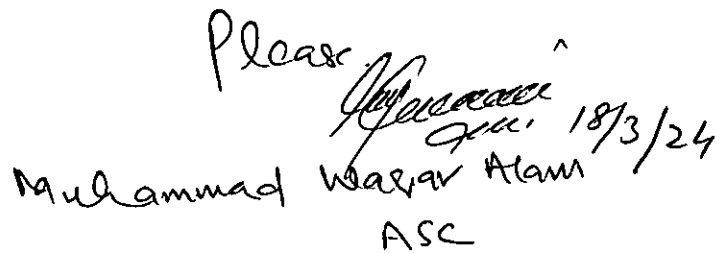 Please
18/3/24
Muhammad Waqar Alam
ASC